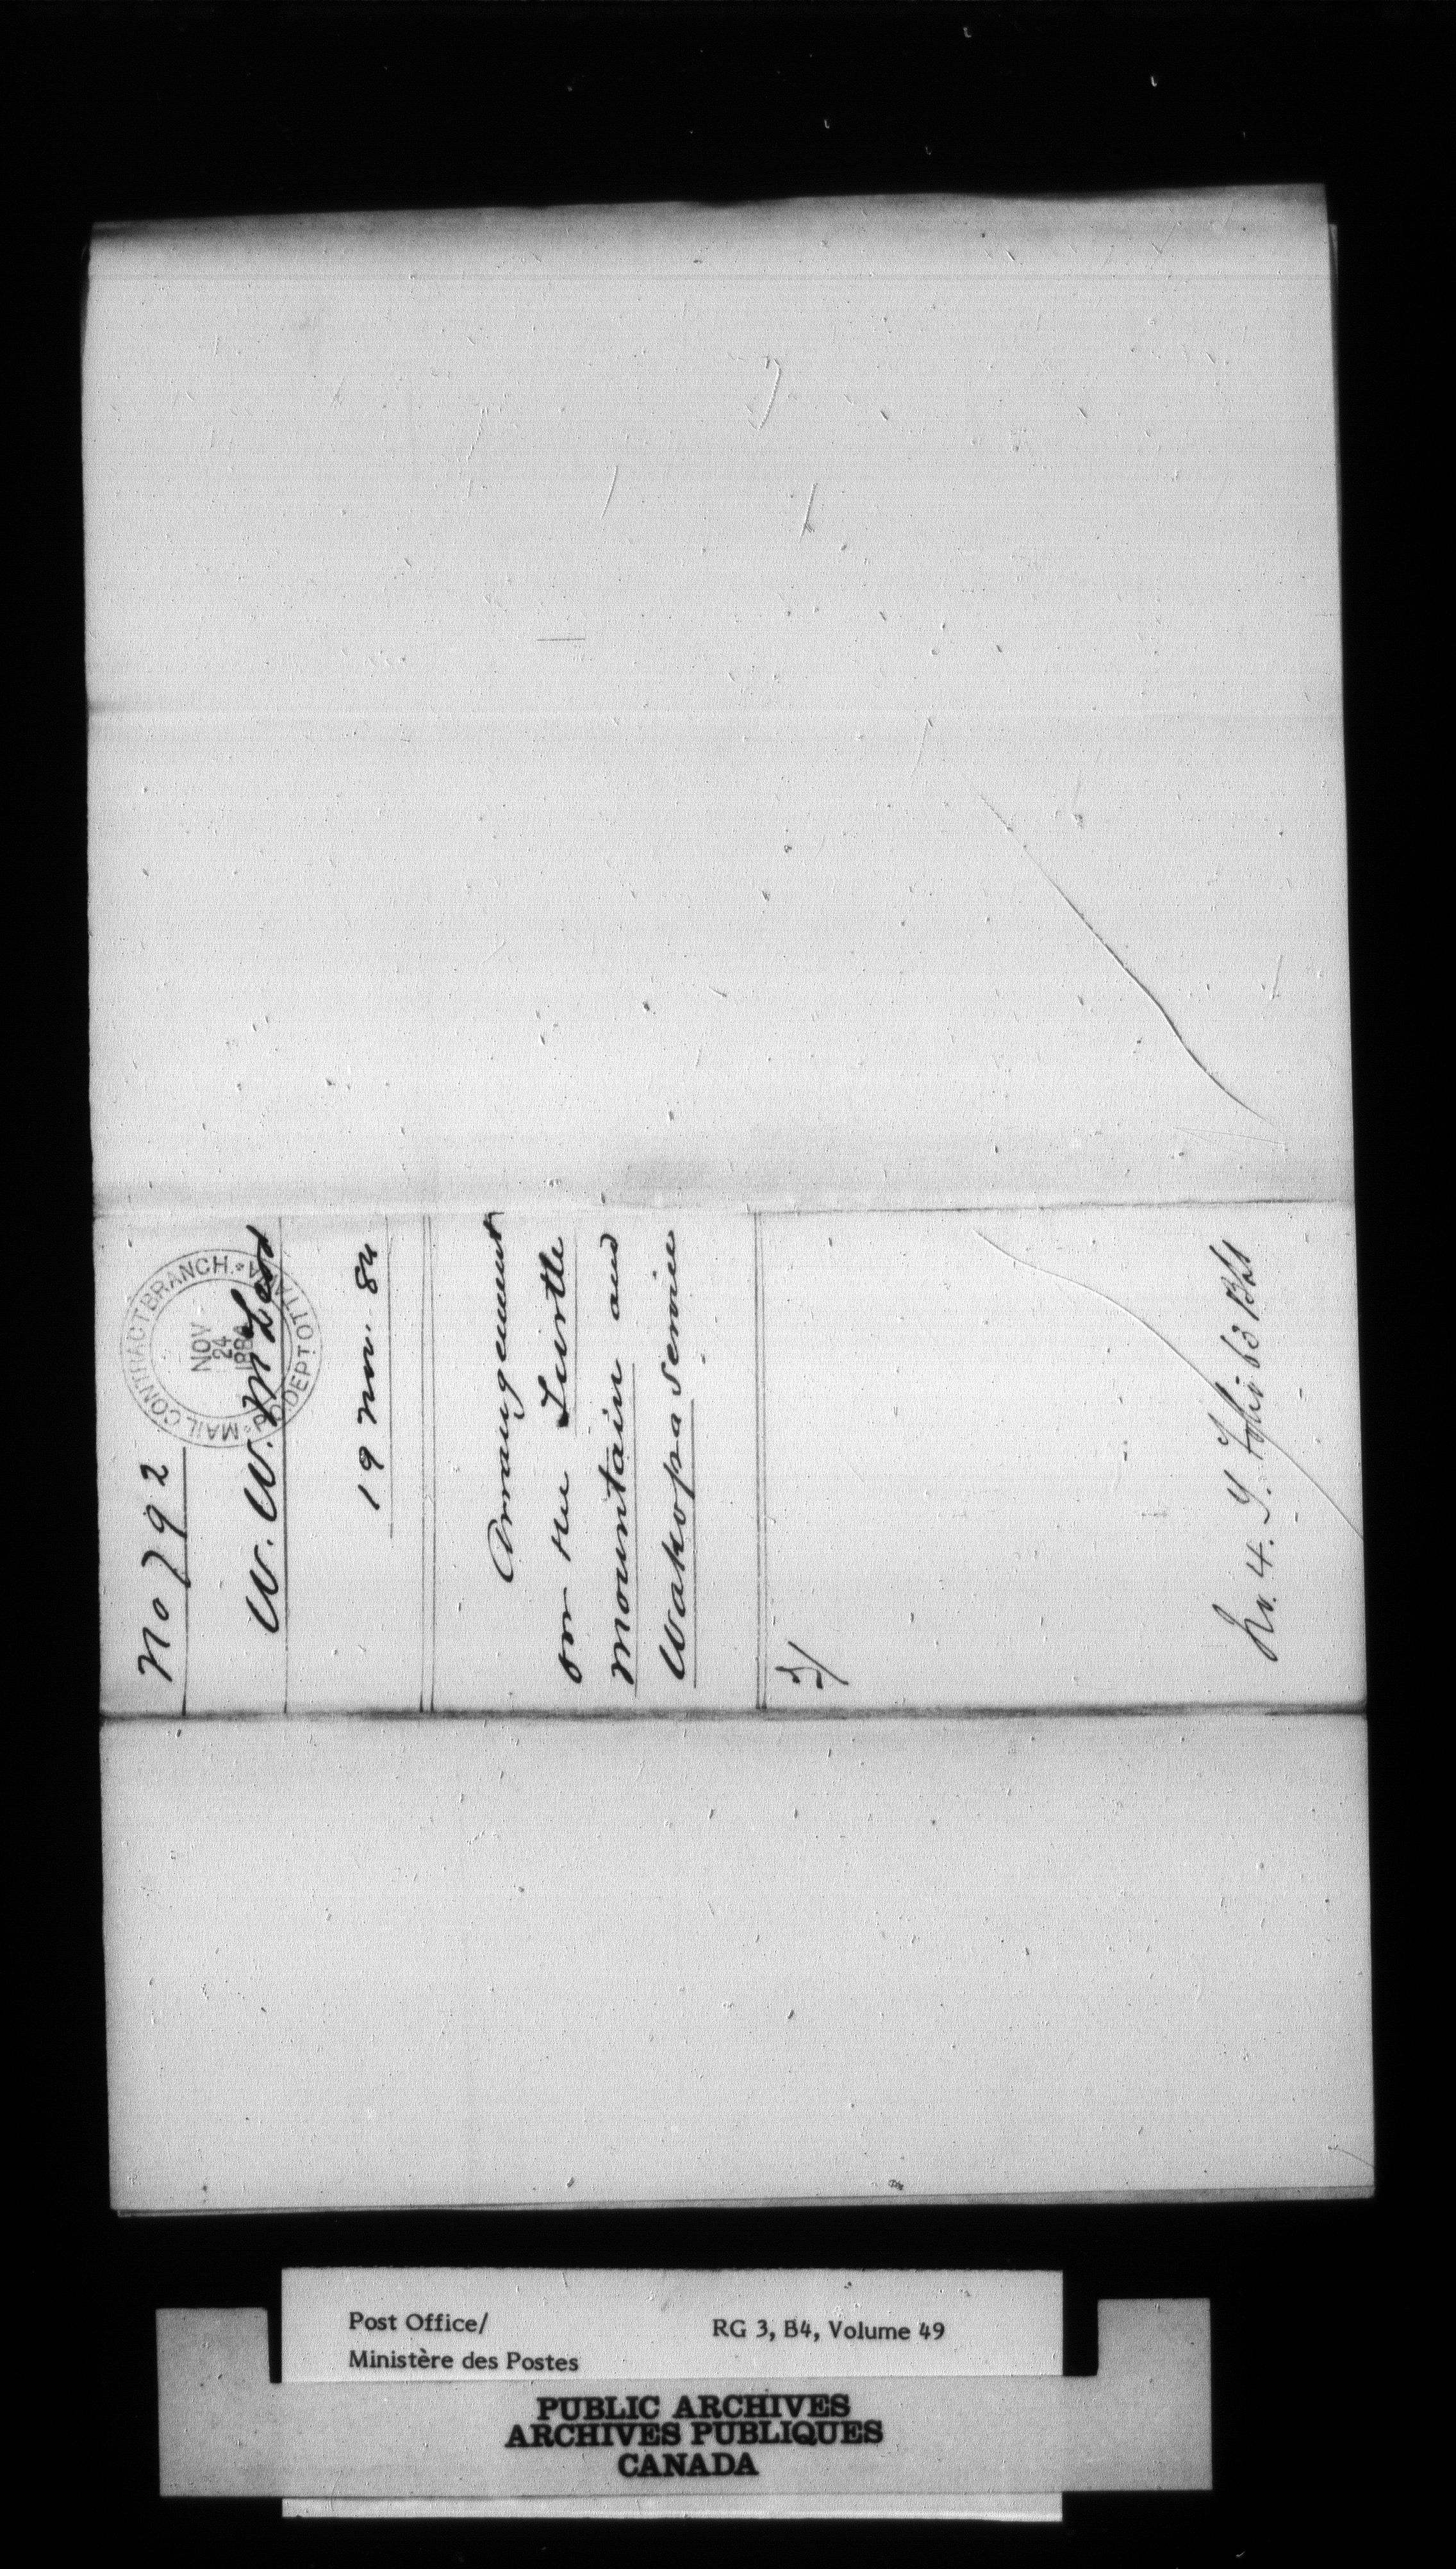 No 792
MAIL CONTRACT BRANCH. P.O. DEPT OTTAWA
NOV
24
1884
W. W. McLeod
19 Nov. 84
Arrangement
on the Turtle
Mountain and
Wakopa service
Post Office/
Ministère des Postes
RG 3, B4, Volume 49
PUBLIC ARCHIVES
ARCHIVES PUBLIQUES
CANADA